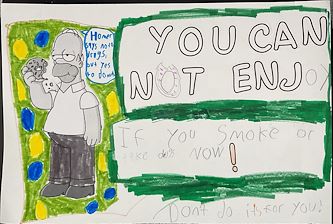 Homer
says no to
drugs,
but yes
to donuts
YOU CAN
NOT ENJOY
If you smoke or
take drugs NOW!
Don't do it for you!